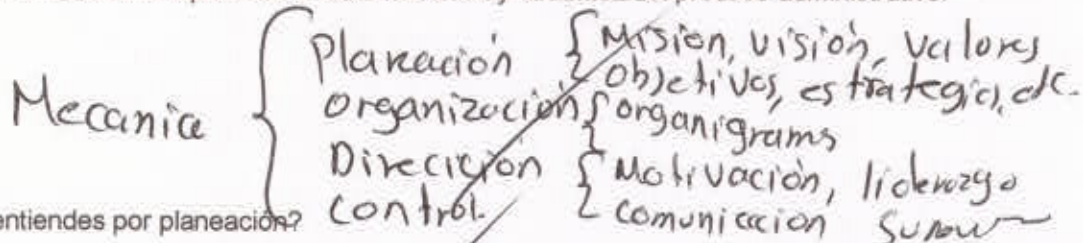 Mecanica
Planeación { Misión, visión, valores
objetivos, estrategia, etc.
organización { organigrams
Direcición { Motivación, liderazgo
comunicacion
control.
entiendes por planeación?